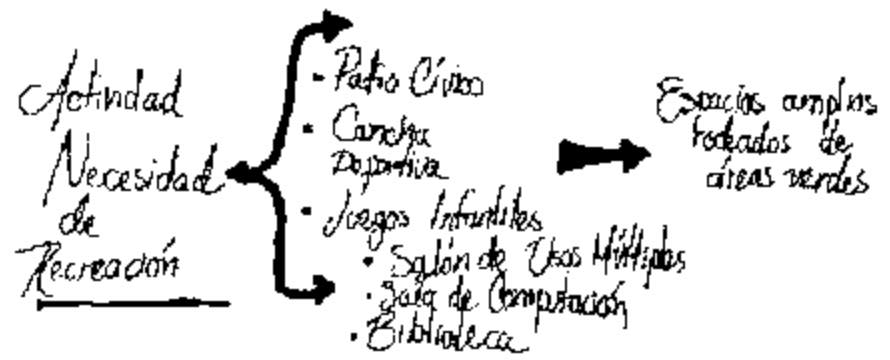 Actividad
Necesidad
de
Recreación
• Patio Cívico
• Cancha
Deportiva
• Juegos Infantiles
• Salón de Usos Múltiples
• Sala de Computación
• Biblioteca
Espacios amplios
rodeados de
áreas verdes